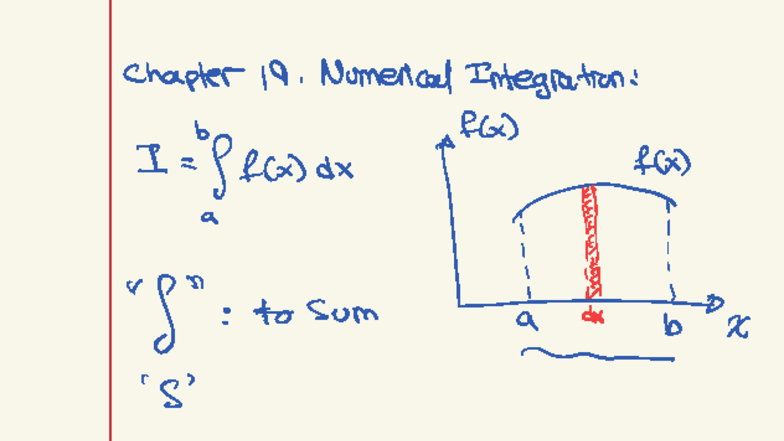 Chapter 19. Numerical Integration:
I = ∫ₐᵇ f(x) dx
"∫" : to Sum
'S'
f(x)
f(x)
a dx b x